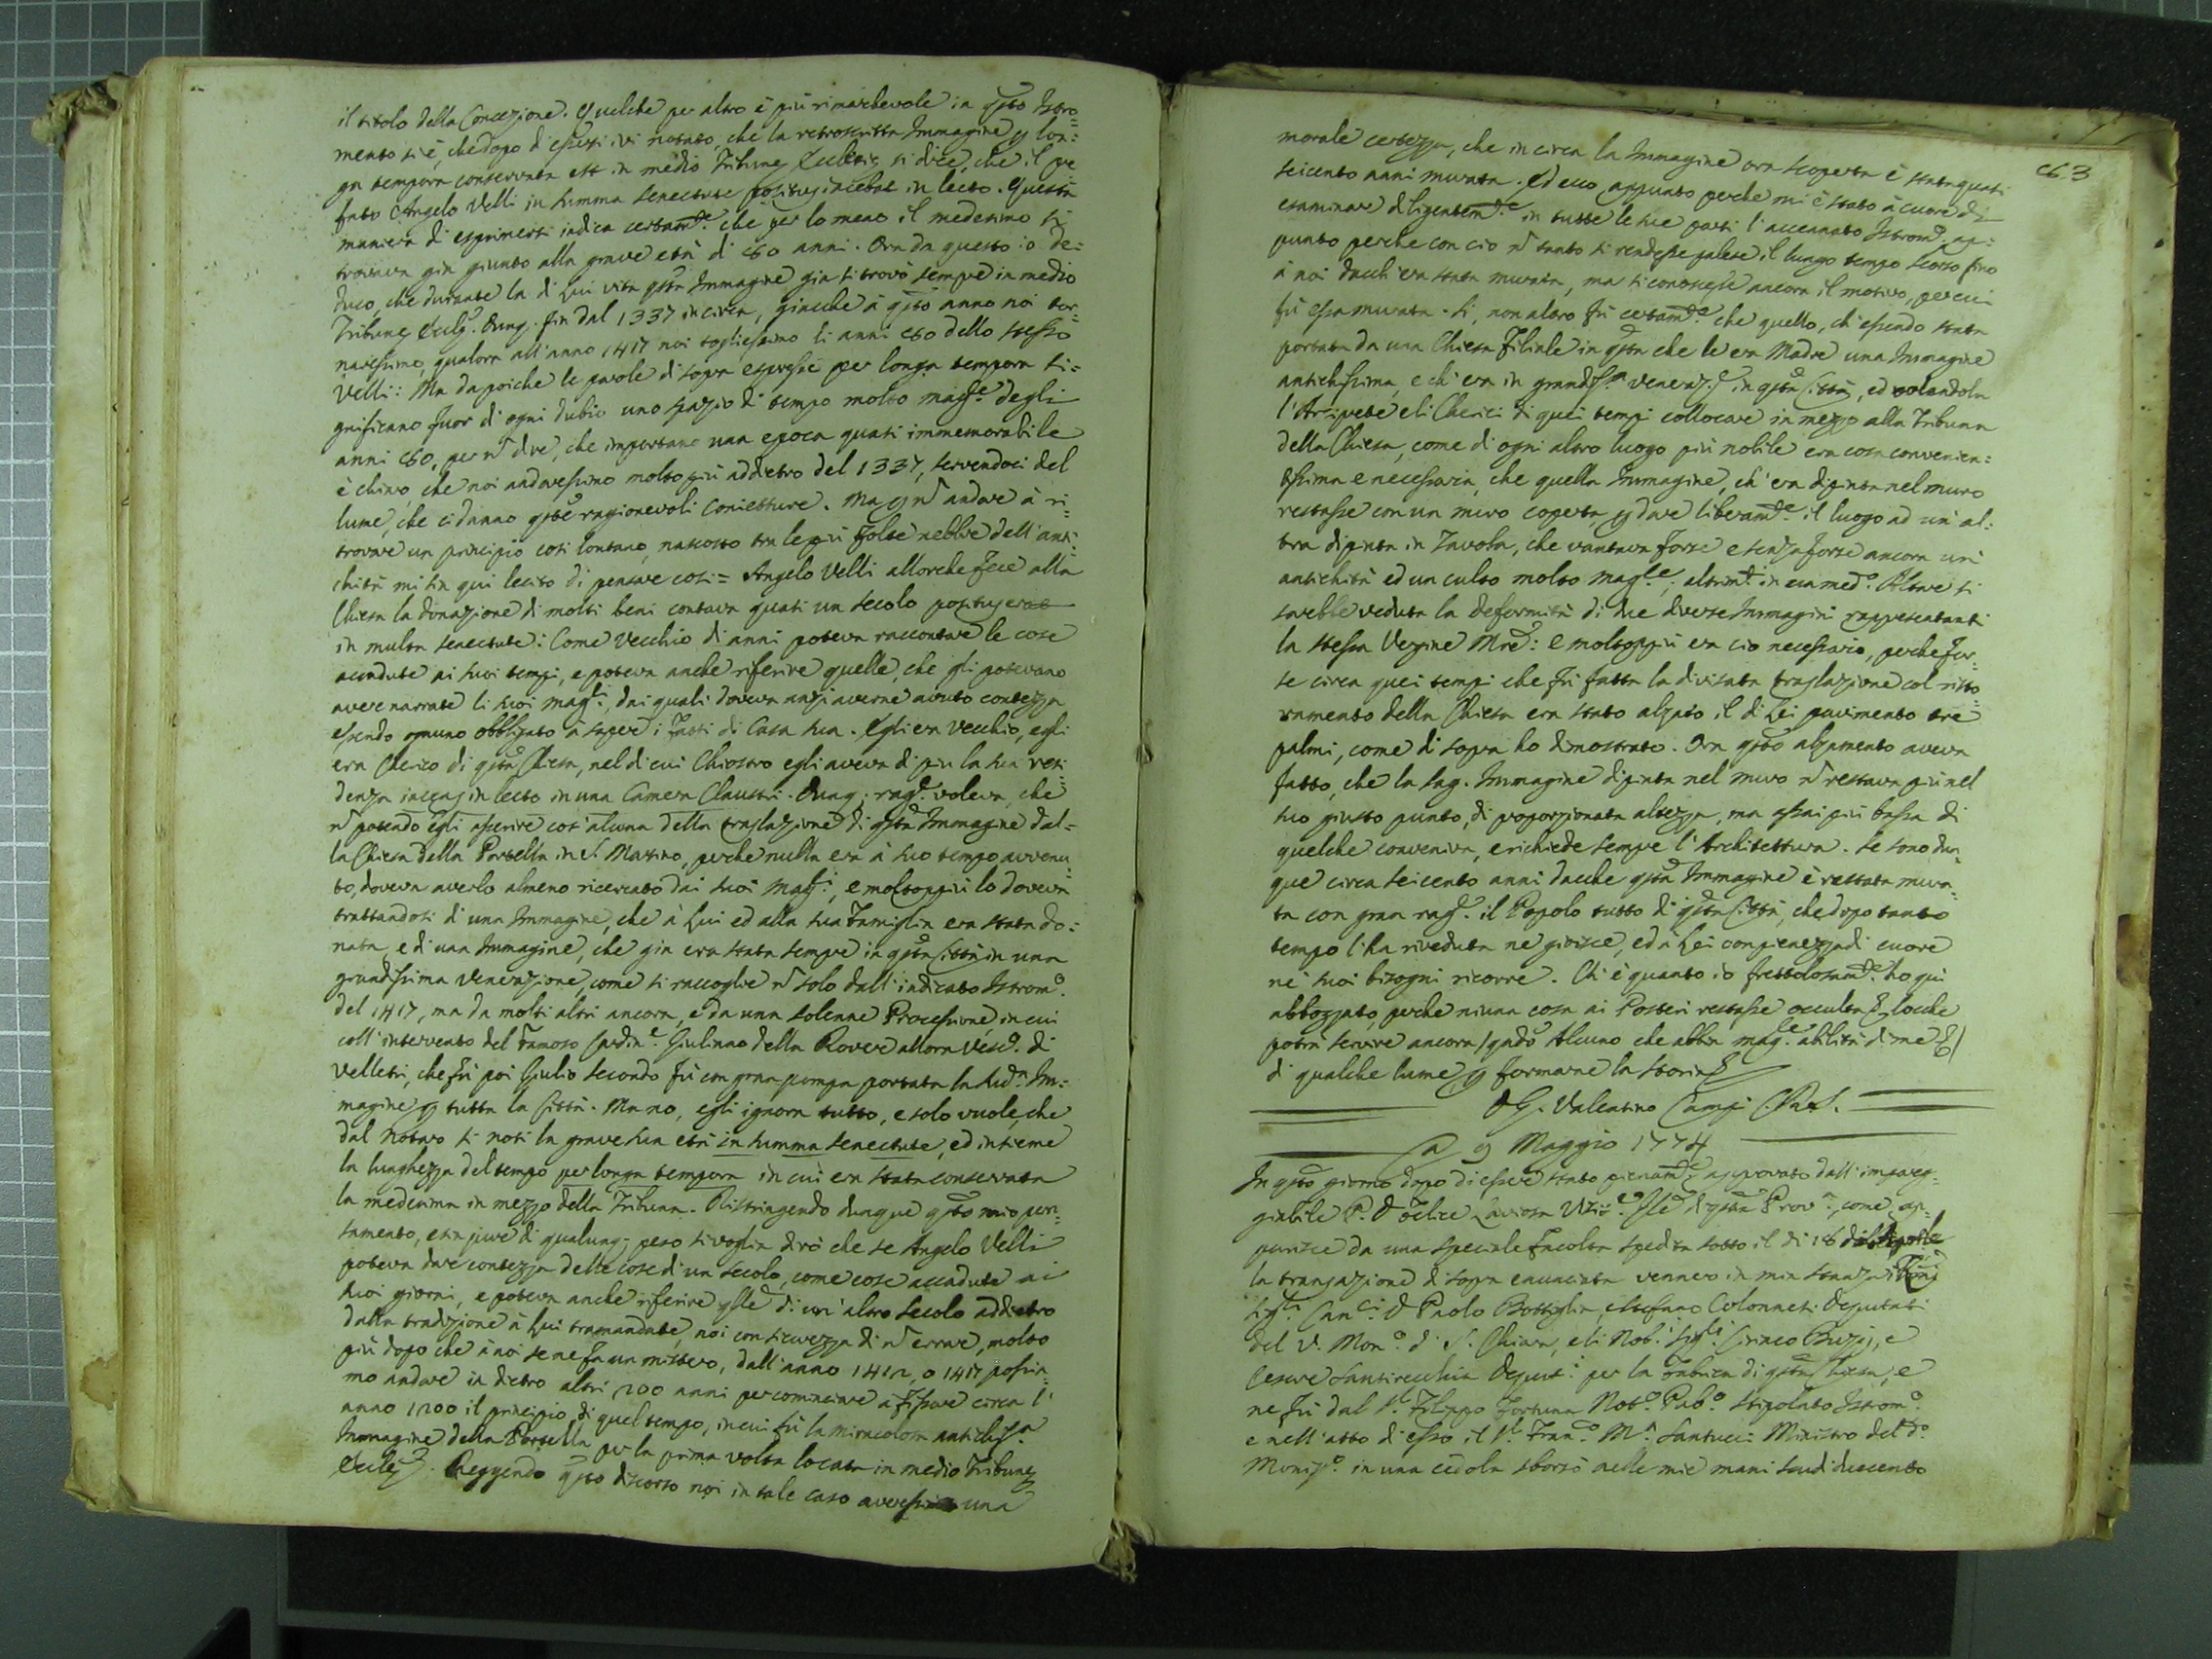 il titolo della Concezione. Quelche per altro è più rimarchevole in qsto Istro=
mento si è, che dopo d'essersi ivi notato, che la retroscritta Immagine p lon:
ga tempora conservata est in medio Tribunę Ecclesię si dice, che il pre
fato Angelo Velli in summa senectute positus jacebat in lecto. Questa
maniera di esprimersi indica certamte. che per lo meno il medesimo si
trovava gia giunto alla grave età di 80 anni. Ora da questo io de=
duco, che durante la di Lui vita qsta Immagine gia si trovò sempre in medio
Tribunę Ecclę. dunq. fin dal 1337 in circa, giacche à qsto anno noi tor-
naressimo, qualora all'anno 1417 noi togliessimo li anni 80 dello stesso
Velli: Ma dapoiche le parole di sopra espresse per longa tempora si=
gnificano fuor di ogni dubio uno spazio di tempo molto magre. degli
anni 80, per ñ dire, che importano una epoca quasi immemorabile
è chiaro che noi andaressimo molto più addietro del 1337, servendoci del
lume, che ci danno qste ragionevoli conietture. Ma p ñ andare à ri:
trovare un principio così lontano, nascosto tra le più folte nebbie dell'anti:
chità mi sia qui lecito di pensare così = Angelo Velli allorche fece alla
Chiesa la donazione di molti beni contava quasi un secolo positus erat
in multa senectute: Come Vecchio di anni poteva raccontare le cose
accadute ai suoi tempi, e poteva anche riferire quelle, che gli potevano
aver narrate li suoi magri, dai quali doveva anzi averne avuto contezza
essendo ognuno obbligato à sapere i Fatti di Casa sua. Egli era Vecchio, egli
era Cherico di qsta Chiesa, nel di cui Chiostro egli aveva di piu la sua resi
denza jacens in lecto in una Camera Claustri. Dunq; ragne. voleva, che
ñ potendo egli asserire cos'alcuna della traslazione di qsta Immagine dal=
la Chiesa della Portella in S. Martino, perche nulla era à suo tempo avvenu
to, doveva averlo almeno ricercato dai suoi magri, e moltoppiù lo doveva
trattandosi di una Immagine, che à Lui ed alla sua Famiglia era stata do:
nata, e di una Immagine, che gia era stata sempre in qsta Città in una
grandissima venerazione, come si raccoglie ñ solo dall'indicato Istromo.
del 1417, ma da molti altri ancora, e da una solenne Processione, in cui
coll'intervento del Famoso Cardinle. Giuliano della Rovere allora Vesco. di
Velletri, che fù poi Giulio Secondo fù con gran pompa portata la sudа. Im=
magine p tutta la Città. Ma no, egli ignora tutto, e solo vuole, che
dal Notaro si noti la grave sua età in summa senectute, ed insieme
la lunghezza del tempo per longa tempora in cui era stata conservata
la medesima in mezzo della Tribuna. Ristringendo dunque qsto mio pen:
samento, e sia pure di qualunq; peso si voglia dirò che se Angelo Velli
poteva dare contezza delle cose di un secolo, come cose accadute ai
suoi giorni, e poteva anche riferire qlle di un'altro secolo addietro
dalla tradizione à Lui tramandate, noi con sicurezza di ñ errare, molto
più dopo che à noi se ne fa un mistero, dall'anno 1412, o 1417 possia:
mo andare in dietro altri 200 anni per cominciare à fissare circa l'
anno 1200 il principio di quel tempo, in cui fù la miracolosa antichissa.
Immagine della Portella per la prima volta locata in medio Tribunę
Ecclesię. Reggendo qsto discorso noi in tale caso averessimo una
63
morale certezza, che in circa la Immagine ora scoperta è stata quasi
seicento anni murata. Ed ecco appunto perche mi è stato à cuore di
esaminare diligentemte. in tutte le sue parti l'accennato Istromo. ap:
punto perche con cio ñ tanto si rendesse palese il lungo tempo scorso fino
à noi dacch'era stata murata, ma si conoscesse ancora il motivo, per cui
fù essa murata. Si, non altro fù certamte. che quello, ch'essendo stata
portata da una Chiesa Filiale in qsta che le era Madre una Immagine
antichissima, e ch'era in grandissa. venerazne. in qsta Città, ed volendola
l'Arciprete e li Cherici di quei tempi collocare in mezzo alla Tribuna
della Chiesa, come di ogni altro luogo più nobile era cosa convenien:
tissima e necessaria, che quella Immagine, ch'era dipinta nel muro
restasse con un muro coperta, p dare liberamte. il luogo ad un'al:
tra dipinta in Tavola, che vantava forse e senza forse ancora un'
antichità ed un culto molto magre. altrimti. in un medo. Altare si
sarebbe veduta la deformità di due diverse Immagini rappresentanti
la stessa Vergine Mre: E moltoppiù era cio necessario, perche for:
se circa quei tempi che fù fatta la divisata traslazione col risto
ramento della Chiesa era stato alzato il di Lei pavimento tre
palmi, come di sopra ho dimostrato. Ora qsto alzamento aveva
fatto, che la sag. Immagine dipinta nel muro ñ restava più nel
suo giusto punto, di proporzionata altezza, ma assai più bassa di
quelche conveniva, e richiede sempre l'Architettura. Se sono dun:
que circa seicento anni dacche qsta Immagine è restata mura:
ta con gran ragne. il Popolo tutto di qsta Città, che dopo tanto
tempo l'ha riveduta ne gioisce, ed à Lei con pienezza di cuore
ne' suoi bisogni ricorre. Ch'è quanto io frettolosamte. ho qui
abbozzato, perche niuna cosa ai Posteri restasse occulta, e locche
potrà servire ancora (qndo Alcuno che abbia magre. abilità di me)
di qualche lume p formarne la Storia
D. G. Valentino Campi C. R. S.
A 9 Maggio 1774
In qsto giorno dopo di essere stato pienamte. approvato dall'impareg-
giabile P. D. Felice Laviosa di qsta Prova. come ap-
parisce da una speciale Facoltà spedita sotto il di 16
la transazione di sopra ennunciata vennero in mia stanza
Sigri. Canci. D. Paolo Bottiglia, e Stefano Colonnesi Deputati
del V. Mono. di S. Chiara, e li Nob.i Sigri. Ciriaco Bruzj, e
Cesare Santirecchia Deputi. per la Fabrica di qsta Chiesa, e
ne fù dal Sr. Filippo Fortuna Noto. Pubo. stipolato Istromo.
e nell'atto di esso il Sr. Franco. Ma. Santucci Ministro del do.
Moniso. in una cedola sborzò nelle mie mani scudi duecento